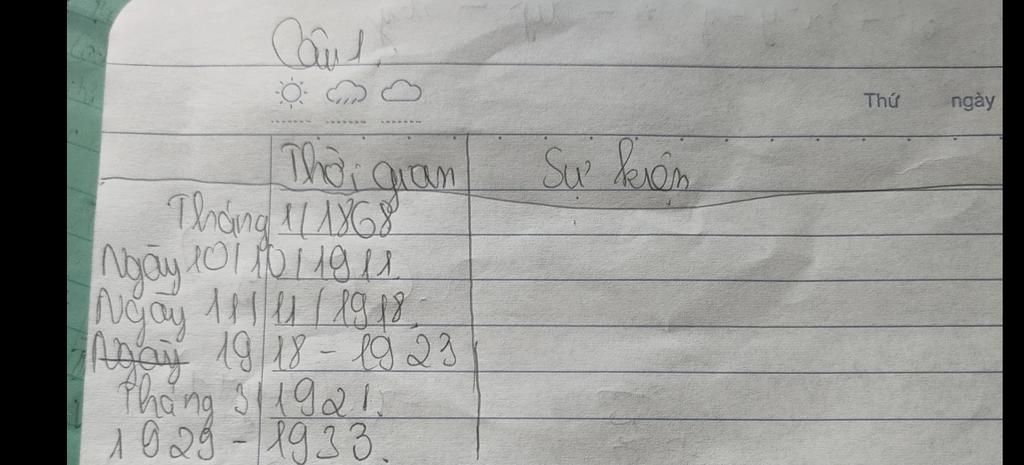 Câu 1.
Thứ ngày
Thời gian Sự kiện
Tháng 1/1868
Ngày 10/10/1911
Ngày 11/11/1918.
Ngày 1918 - 1923
Tháng 3/1921.
1929 - 1933.